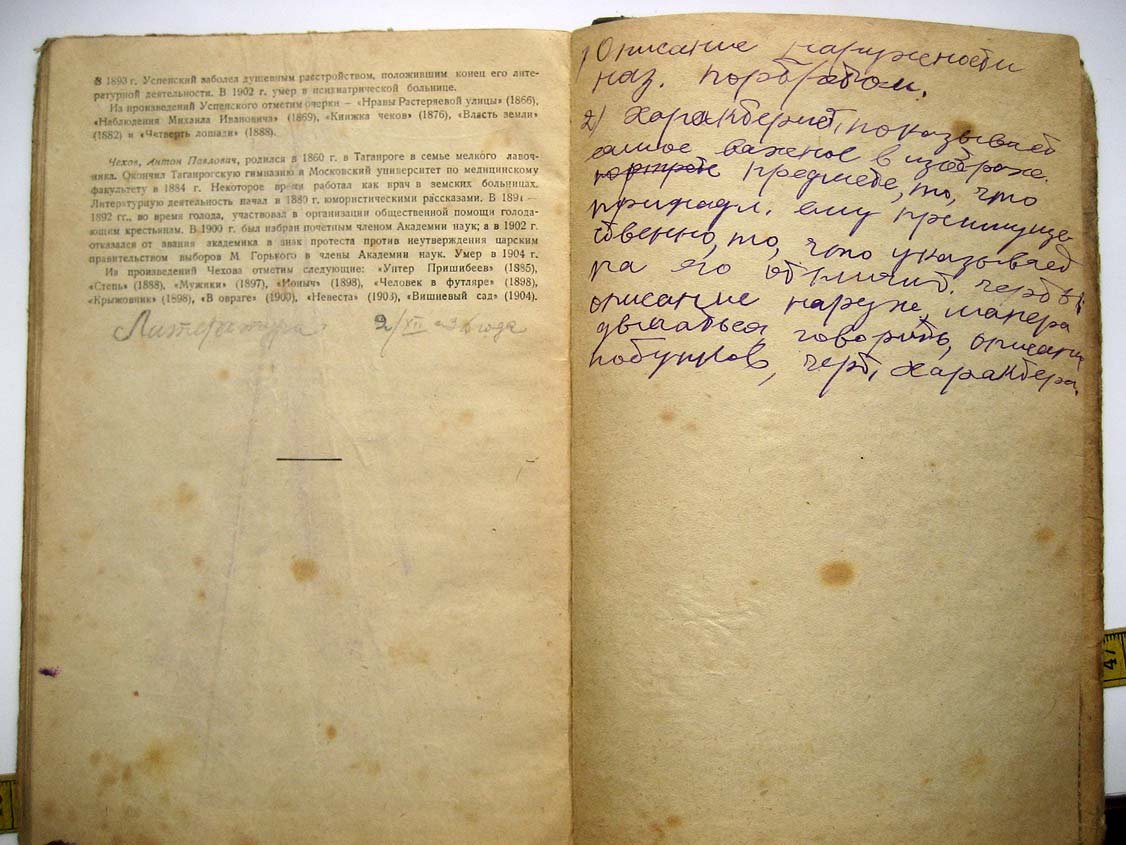 В 1893 г. Успенский заболел душевным расстройством, положившим конец его лите-
ратурной деятельности. В 1902 г. умер в психиатрической больнице.
Из произведений Успенского отметим очерки — «Нравы Растеряевой улицы» (1866),
«Наблюдения Михаила Ивановича» (1869), «Книжка чеков» (1876), «Власть земли»
(1882) и «Четверть лошади» (1888).
Чехов, Антон Павлович, родился в 1860 г. в Таганроге в семье мелкого лавоч-
ника. Окончил Таганрогскую гимназию и Московский университет по медицинскому
факультету в 1884 г. Некоторое время работал как врач в земских больницах.
Литературную деятельность начал в 1880 г. юмористическими рассказами. В 1891—
1892 гг., во время голода, участвовал в организации общественной помощи голода-
ющим крестьянам. В 1900 г. был избран почетным членом Академии наук; а в 1902 г.
отказался от звания академика в знак протеста против неутверждения царским
правительством выборов М. Горького в члены Академии наук. Умер в 1904 г.
Из произведений Чехова отметим следующие: «Унтер Пришибеев» (1885),
«Степь» (1888), «Мужики» (1897), «Ионыч» (1898), «Человек в футляре» (1898),
«Крыжовник» (1898), «В овраге» (1900), «Невеста» (1903), «Вишневый сад» (1904).
Литература 2/XII года
1) Описание наружности
наз. портретом.
2) Характерист. показывает
самое важное в изображ.
портрет предмете, то, что
принадл. ему преимуще
ственно, то, что указывает
на его отличит. черты
описание наруж., манера
двигаться, говорить, описан.
поступков, черт, характера.
47